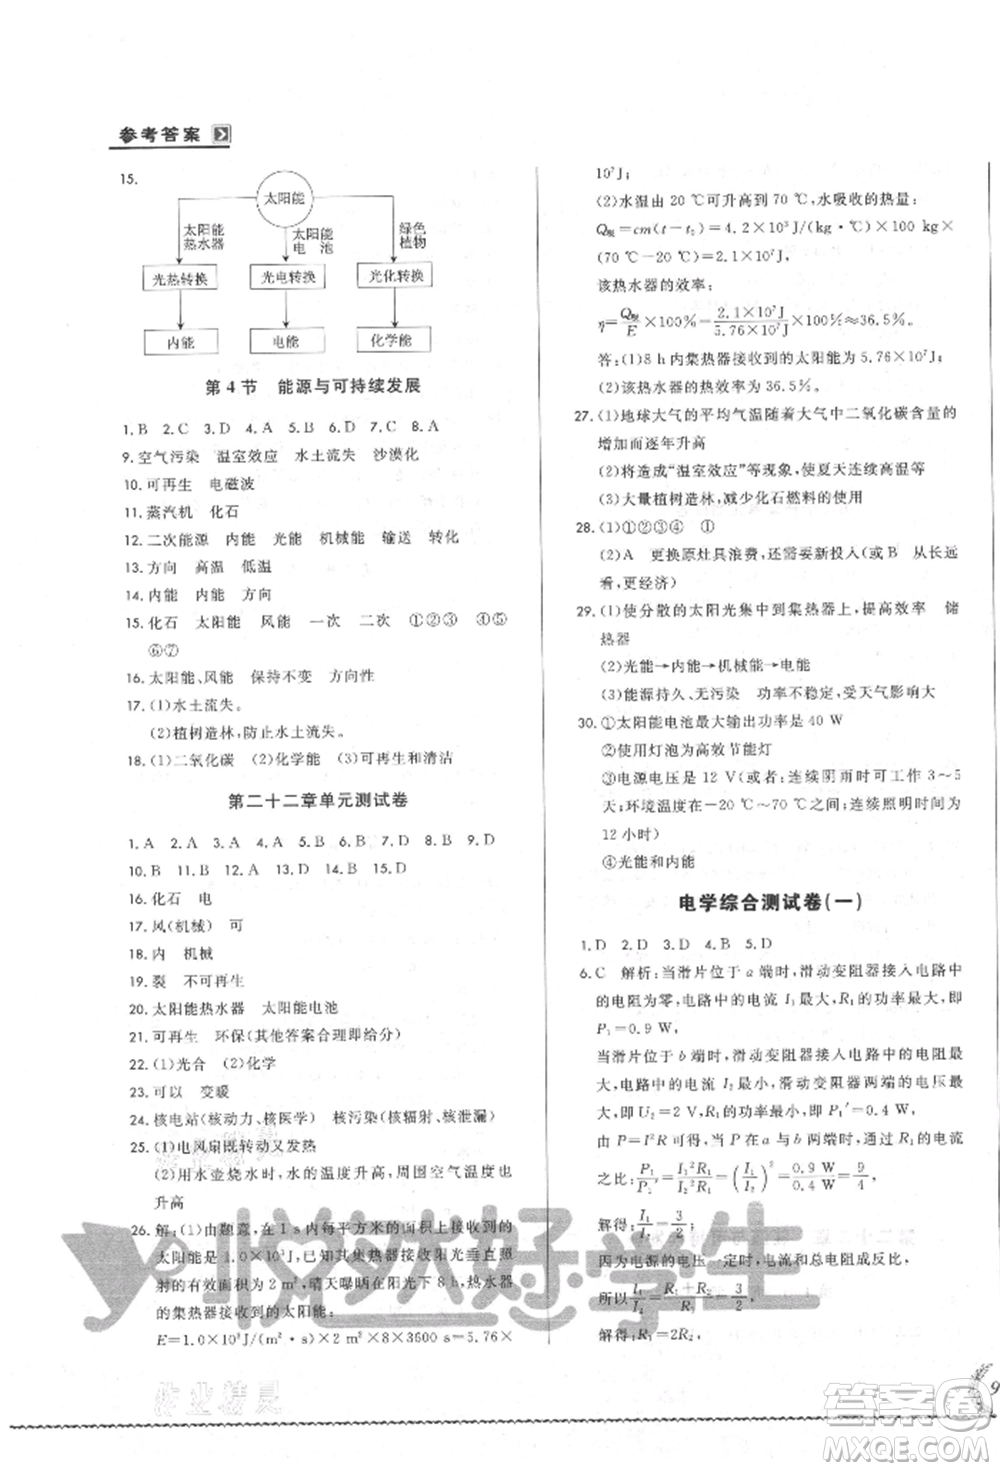 参考答案
15.
太阳能
太阳能热水器
太阳能电池
绿色植物
光热转换
光电转换
光化转换
内能
电能
化学能
第 4 节 能源与可持续发展
1. B 2. C 3. D 4. D 5. D 6. D 7. C 8. A
9. 空气污染 温室效应 水土流失 沙漠化
10. 可再生 电磁波
11. 蒸汽机 化石
12. 二次能源 内能 光能 机械能 输送 转化
13. 方向 高温 低温
14. 内能 内能 方向
15. 化石 太阳能 风能 一次 二次 ①②③ ④⑤
⑥⑦
16. 太阳能、风能 保持不变 方向性
17. (1)水土流失。
(2)植树造林,防止水土流失。
18. (1)二氧化碳 (2)化学能 (3)可再生和清洁
第二十二章单元测试卷
1. A 2. A 3. D 4. A 5. B 6. B 7. D 8. D 9. D
10. B 11. B 12. A 13. D 14. B 15. D
16. 化石 电
17. 风(机械) 可
18. 内 机械
19. 裂 不可再生
20. 太阳能热水器 太阳能电池
21. 可再生 环保(其他答案合理即给分)
22. (1)光合 (2)化学
23. 可以 变暖
24. 核电站(核动力、核医学) 核污染(核辐射、核泄漏)
25. (1)电风扇既转动又发热
(2)用水壶烧水时,水的温度升高,周围空气温度也
升高
26. 解:(1)由题意,在 1 s 内每平方米的面积上接收到的
太阳能是1.0×10³J,集热器接收阳光垂直照射
的面积为 2 m²,晴天曝晒阳光下 8 h,热水器
的集热器接收到的太阳能:
E=1.0×10³J/(m²·s)×2 m²×8×3600 s=5.76×
10⁷J;
(2)水温由 20 ℃可升高到 70 ℃,水吸收的热量:
Q吸=cm(t-t₂)=4.2×10³J/(kg·℃)×100 kg×
(70 ℃-20 ℃)=2.1×10⁷J;
该热水器的效率:
η=Q吸/E×100%=2.1×10⁷J/5.76×10⁷J×100%≈36.5%。
答:(1)8 h内集热器接收到的太阳能为 5.76×10⁷J;
(2)该热水器的热效率为 36.5%。
27. (1)地球大气的平均气温随着大气中二氧化碳含量的
增加而逐年升高
(2)将造成“温室效应”等现象,使夏天连续高温等
(3)大量植树造林,减少化石燃料的使用
28. (1)①②③④ ①
(2)A 更换原灶具浪费,还需要新投入(或 B 从长远
看,更经济)
29. (1)使分散的太阳光集中到集热器上,提高效率 储
热器
(2)光能→内能→机械能→电能
(3)能源持久、无污染 功率不稳定,受天气影响大
30. ①太阳能电池最大输出功率是 40 W
②使用灯泡为高效节能灯
③电源电压是 12 V(或者:连续阴雨时可工作 3~5
天;环境温度在-20 ℃~70 ℃;连续照明时间是
12 小时)
④光能和内能
电学综合测试卷(一)
1. D 2. D 3. D 4. B 5. D
6. C 解析:当滑片位于 a 端时,滑动变阻器接入电路中
的电阻为零,电路中的电流 I₁最大,R₁的功率最大,即
P₁=0.9 W,
当滑片位于 b 端时,滑动变阻器接入电路中的电阻最
大,电路中的电流 I₂最小,滑动变阻器两端的电压最
大,即 U₂=2 V,R₁的功率最小,即 P₁′=0.4 W,
由 P=I²R 可得,当 P 在 a 与 b 两端时,通过 R₁的电流
之比:P₁/P₁′=I₁²R₁/I₂²R₁=(I₁/I₂)²=0.9 W/0.4 W=9/4
解得:I₁/I₂=3/2
因为电源的电压一定时,电流和总电阻成反比,
所以I₁/I₂=(R₁+R₂)/R₁=3/2
解得:R₁=2R₂,
9
悦然好学生
作业精灵
答案圈
MXQE.COM